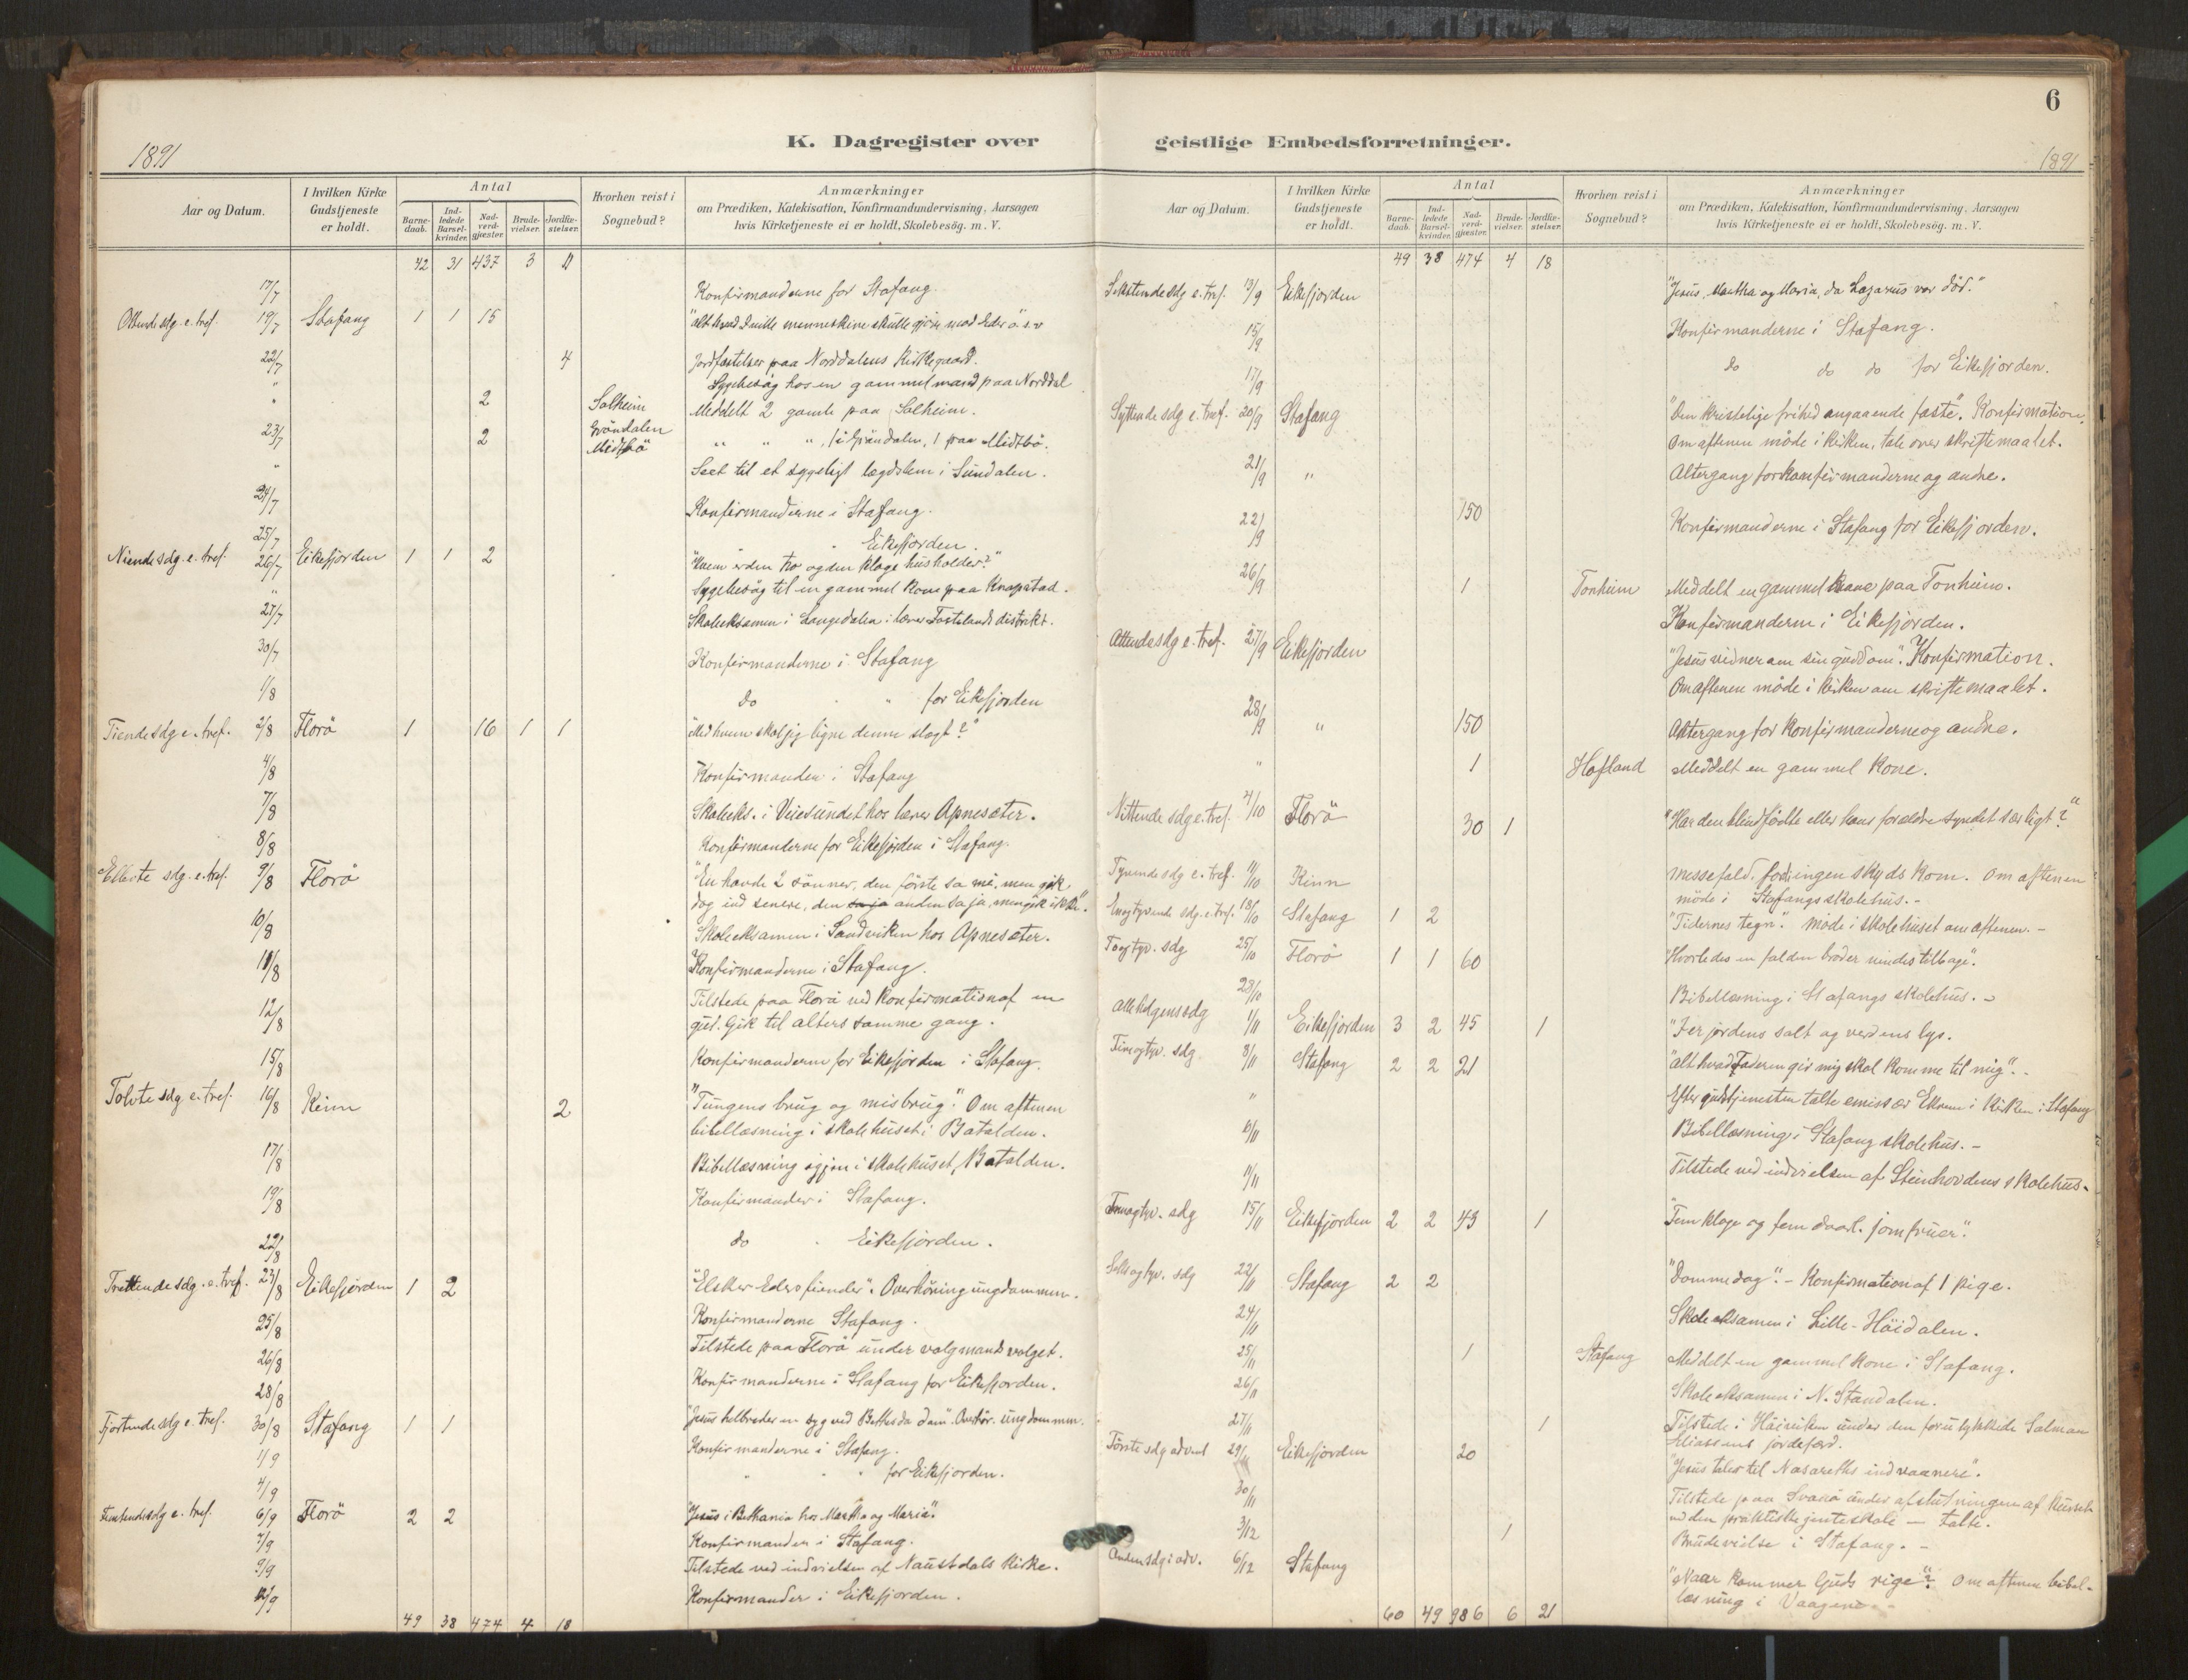 6
1891
K. Dagregister over geistlige Embedsforretninger.
1891
Aar og Datum.
I hvilken Kirke Gudstjeneste er holdt.
Antal
Barnedaab.
Indledede Barselkvinder.
Nadverdgjæster.
Brudevielser.
Jordfæstelser.
Hvorhen reist i Sognebud?
Anmærkninger
om Prædiken, Katekisation, Konfirmandundervisning, Aarsagen
hvis Kirketjeneste ei er holdt, Skolebesög. m. V.
42 31 437 3 11
17/7 Konfirmanderne for Stafang.
Ottende sdg. e. tref. 19/7 Stafang 1 1 15 "alt hvad I ville menneskene skulle gjöre mod Eder o" s. v
22/7 4 Jordfæstelser paa Norddalens Kirkegaard.
" Sygebesög hos en gammel mand paa Norddal
" 2 Solheim Meddelt 2 gamle paa Solheim.
23/7 2 Gröndalen Midtbö " " ", 1 i Gröndalen, 1 paa Midtbö.
" Seet til et sygeligt lægdslem i Sundalen.
24/7 Konfirmanderne i Stafang.
25/7 " " Eikefjorden.
Niende sdg. e. tref. 26/7 Eikefjorden 1 1 2 "Hvem er den tro og den kloge husholder?"
" Sygebesög til en gammel kone paa Knapstad.
27/7 Skoleeksamen i Langedalen i lærer Tostelands distrikt.
30/7 Konfirmanderne i Stafang
1/8 do " " for Eikefjorden
Tiende sdg e. tref. 2/8 Florö 1 16 1 1 "Med hvem skal jeg ligne denne slægt?"
4/8 Konfirmander i Stafang
7/8 Skoleeks. i Veiesundet hos lærer Apnesæter.
8/8 Konfirmanderne for Eikefjorden i Stafang.
Ellevte sdg. e. tref. 9/8 Florö "En havde 2 sönner, den förste sa nei, men gik
dog ind senere, den anden sa ja, men gik ikke".
10/8 Skoleeksamen i Sandviken hos Apnesæter.
11/8 Konfirmanderne i Stafang.
12/8 Tilstede paa Florö ved konfirmation af en
gut. Gik til alters samme gang.
15/8 Konfirmanderne for Eikefjorden i Stafang.
Tolvte sdg e. tref. 16/8 Kinn 2 "Tungens brug og misbrug." Om aftenen
bibellæsning i skolehuset i Batalden.
17/8 Bibellæsning igjen i skolehuset, Batalden.
19/8 Konfirmander i Stafang.
22/8 do " Eikefjorden.
Trettende sdg. e. tref. 23/8 Eikefjorden 1 2 "Elsker Eders fiender". Overhöring ungdommen.
25/8 Konfirmanderne Stafang.
26/8 Tilstede paa Florö under valgmandsvalget.
28/8 Konfirmanderne i Stafang for Eikefjorden.
Fjortende sdg e. tref. 30/8 Stafang 1 1 "Jesus helbreder en syg ved Bethesda dam". Overhör. ungdommen.
1/9 Konfirmanderne i Stafang.
4/9 " " " for Eikefjorden.
Femtende sdg e. tref. 6/9 Florö 2 2 "Jesus i Bethania hos Martha og Maria".
7/9 Konfirmander i Stafang.
9/9 Tilstede ved indvielsen af Naustdals kirke.
12/9 Konfirmander i Eikefjorden.
49 38 474 4 18
Aar og Datum.
I hvilken Kirke Gudstjeneste er holdt.
Antal
Barnedaab.
Indledede Barselkvinder.
Nadverdgjæster.
Brudevielser.
Jordfæstelser.
Hvorhen reist i Sognebud?
Anmærkninger
om Prædiken, Katekisation, Konfirmandundervisning, Aarsagen
hvis Kirketjeneste ei er holdt, Skolebesög. m. V.
49 38 474 4 18
Sekstende sdg e. tref. 13/9 Eikefjorden "Jesus, Martha og Maria, da Lazarus var död."
15/9 Konfirmanderne i Stafang.
17/9 do do do for Eikefjorden.
Syttende sdg e. tref. 20/9 Stafang "Den kristelige frihed angaaende faste". Konfirmation.
Om aftenen möde i kirken, tale over skriftemaalet.
21/9 " 150 Altergang for konfirmanderne og andre.
22/9 Konfirmanderne i Stafang for Eikefjorden.
26/9 1 Tonheim Meddelt en gammel kone paa Tonheim.
Konfirmanderne i Eikefjorden.
Attende sdg e. tref. 27/9 Eikefjorden "Jesus vidner om sin guddom". Konfirmation.
Om aftenen möde i kirken om skriftemaalet.
28/9 " 150 Altergang for konfirmanderne og andre.
" 1 Hofland Meddelt en gammel kone.
Nittende sdg e. tref. 4/10 Florö 30 1 "Har den blindfödte eller hans forældre syndet særligt?"
Tyvende sdg e. tref. 11/10 Kinn Messefald, fordi ingen skyds kom. Om aftenen
möde i Stafangs skolehus.-
Enogtyvende sdg. e. tref. 18/10 Stafang 1 2 "Tidernes tegn". Möde i skolehuset om aftenen.-
Toogtyv. sdg 25/10 Florö 1 1 60 "Hvorledes en falden broder vindes tilbage".
28/10 Bibellæsning i Stafangs skolehus.-
Allehelgens sdg 1/11 Eikefjorden 3 2 45 1 "I er jordens salt og verdens lys.
Fireogtyv. sdg. 8/11 Stafang 2 2 21 "Alt hvad Faderen gir mig skal komme til mig".
" Efter gudstjenesten talte emissær Ekrem i kirken i Stafang
Bibellæsning i Stafang skolehus.-
11/11 Tilstede ved indvielsen af Steinhovdens skolehus.
Femogtyv. sdg 15/11 Eikefjorden 2 2 43 1 "Fem kloge og fem daarl. jomfruer".
Seksogtyv. sdg 22/11 Stafang 2 2 "Dommedag".- Konfirmation af 1 pige.
24/11 Skoleeksamen i Lille-Höidalen.
25/11 1 Stafang Meddelt en gammel kone i Stafang.
26/11 Skoleeksamen i N. Standalen.
27/11 1 Tilstede i Höiviken under den forulykkede Salmon
Eliassens jordefærd.
Förste sdg advent 29/11 Eikefjorden 20 "Jesus taler til Nasareths indvaanere".
30/11 Tilstede paa Svanö under afslutningen af kurset
ved den praktiske jenteskole - talte.
3/12 1 Brudevielse i Stafang.-
Anden sdg i adv. 6/12 Stafang "Naar kommer Guds rige"? Om aftenen bibel-
læsning i Vaagene.-
60 49 986 6 21